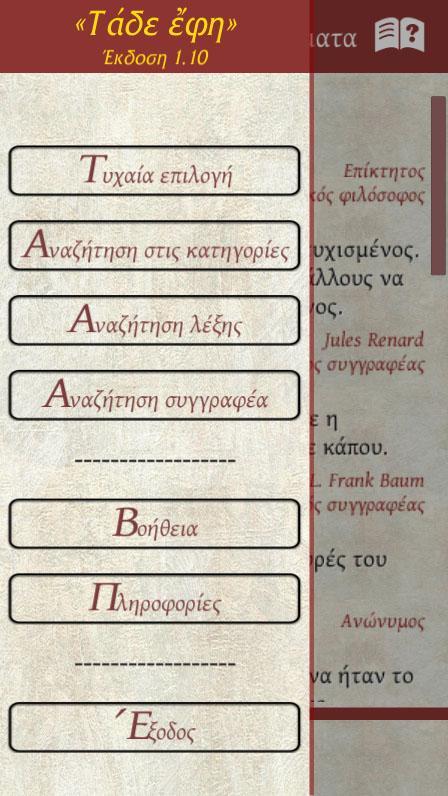 «Τάδε ἔφη»
Έκδοση 1.10
Τυχαία επιλογή
Αναζήτηση στις κατηγορίες
Αναζήτηση λέξης
Αναζήτηση συγγραφέα
-----------------
Βοήθεια
Πληροφορίες
-----------------
Έξοδος
ατα
Επίκτητος
κός φιλόσοφος
τυχισμένος.
άλλους να
νος.
Jules Renard
ς συγγραφέας
ε η
ε κάπου.
L. Frank Baum
ός συγγραφέας
ρές του
Ανώνυμος
να ήταν το